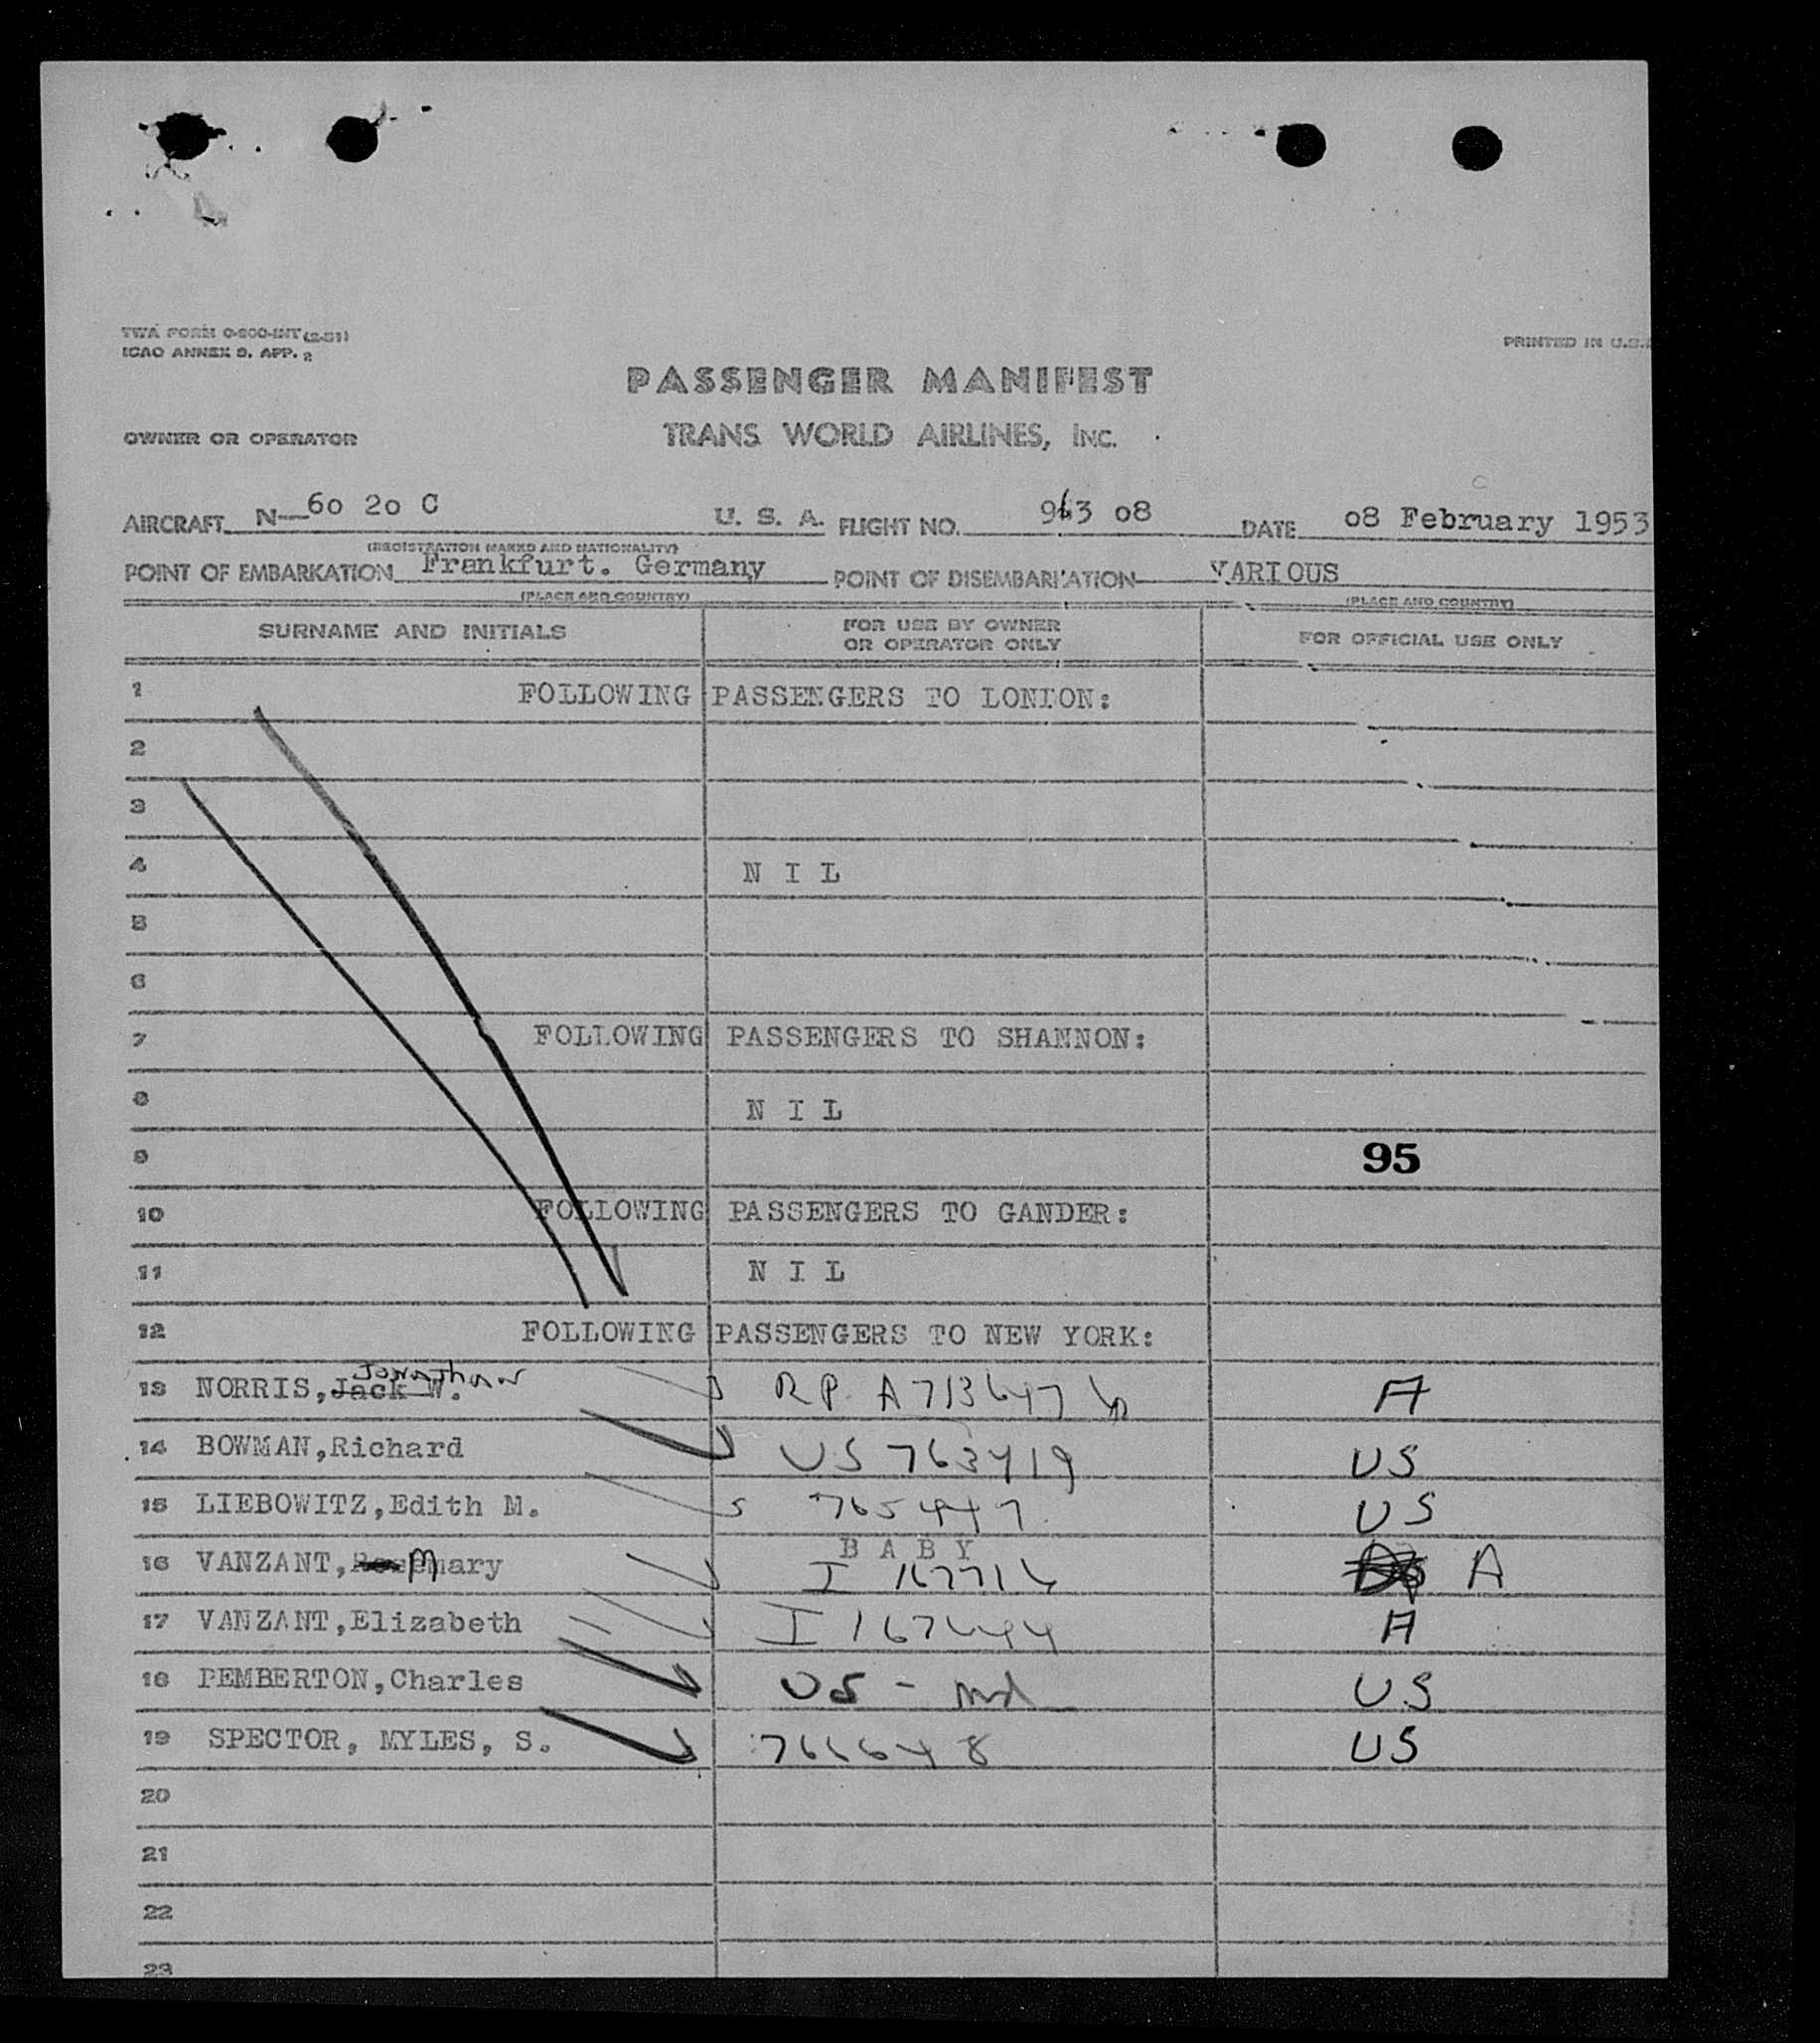 TWA FORM 0-800-INT (2-51)
ICAO ANNEX 9. APP. 2
PRINTED IN U.S.
PASSENGER MANIFEST
OWNER OR OPERATOR TRANS WORLD AIRLINES, INC.
AIRCRAFT N-60 20 C U. S. A. FLIGHT NO. 963 08 DATE 08 February 1953
(REGISTRATION MARKS AND NATIONALITY)
POINT OF EMBARKATION Frankfurt. Germany POINT OF DISEMBARKATION VARIOUS
(PLACE AND COUNTRY) (PLACE AND COUNTRY)
SURNAME AND INITIALS FOR USE BY OWNER OR OPERATOR ONLY FOR OFFICIAL USE ONLY
1 FOLLOWING PASSENGERS TO LONDON:
2
3
4 N I L
5
6
7 FOLLOWING PASSENGERS TO SHANNON:
8 N I L
9 95
10 FOLLOWING PASSENGERS TO GANDER:
11 N I L
12 FOLLOWING PASSENGERS TO NEW YORK:
Jonathan
13 NORRIS, Jack W. RP A713647 A
14 BOWMAN, Richard US 763419 US
15 LIEBOWITZ, Edith M. 765447 US
BABY
16 VANZANT, Mary I 167716 A
17 VANZANT, Elizabeth I 167644 A
18 PEMBERTON, Charles US - US
19 SPECTOR, MYLES, S. 766648 US
20
21
22
23